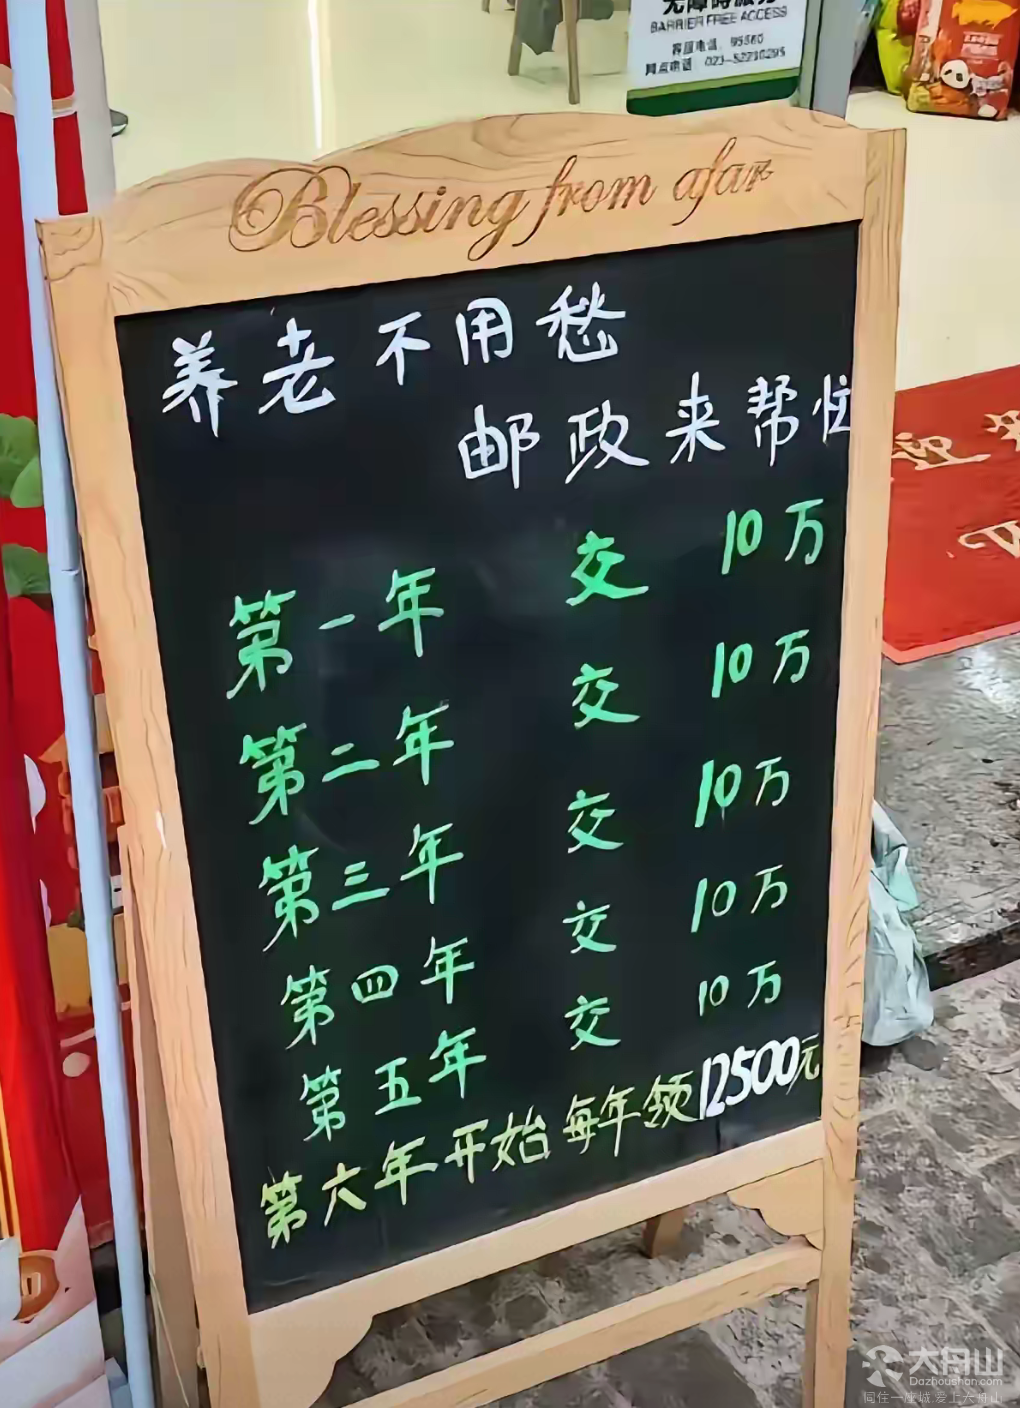 BARRIER FREE ACCESS
客服电话：95580
网点电话：023-52210295
Blessing from afar
养老不用愁
邮政来帮忙
第一年 交 10万
第二年 交 10万
第三年 交 10万
第四年 交 10万
第五年 交 10万
第六年开始每年领12500元
迎
大舟山
Dazhoushan.com
同住一座城 爱上大舟山